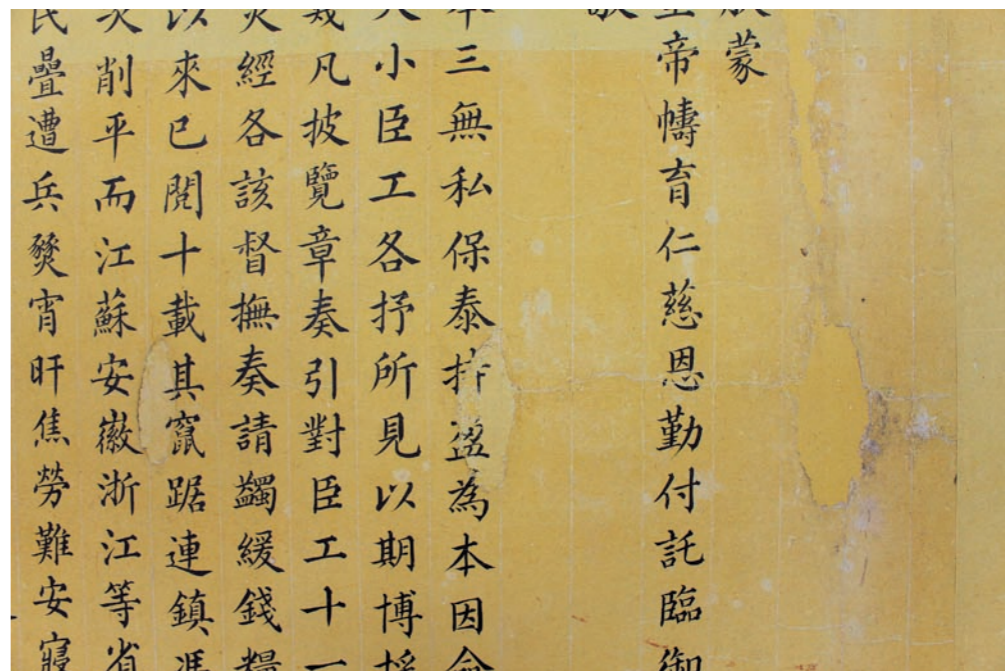 蒙
帝幬育仁慈恩勤付託臨御
三無私保泰持盈為本因
小臣工各抒所見以期博採
凡披覽章奏引對臣工十一
經各該督撫奏請蠲緩錢糧
以來已閱十載其竄踞連鎮馮
削平而江蘇安徽浙江等省
民疊遭兵燹宵旰焦勞難安寢